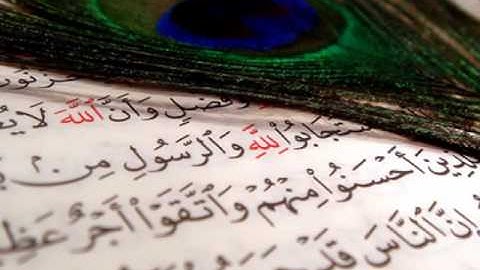 وَفَضْلٍ وَأَنَّ ٱللَّهَ لَا
ٱسْتَجَابُوا۟ لِلَّهِ وَٱلرَّسُولِ مِنۢ
لِلَّذِينَ أَحْسَنُوا۟ مِنْهُمْ وَٱتَّقَوْا۟ أَجْرٌ
إِنَّ ٱلنَّاسَ قَدْ